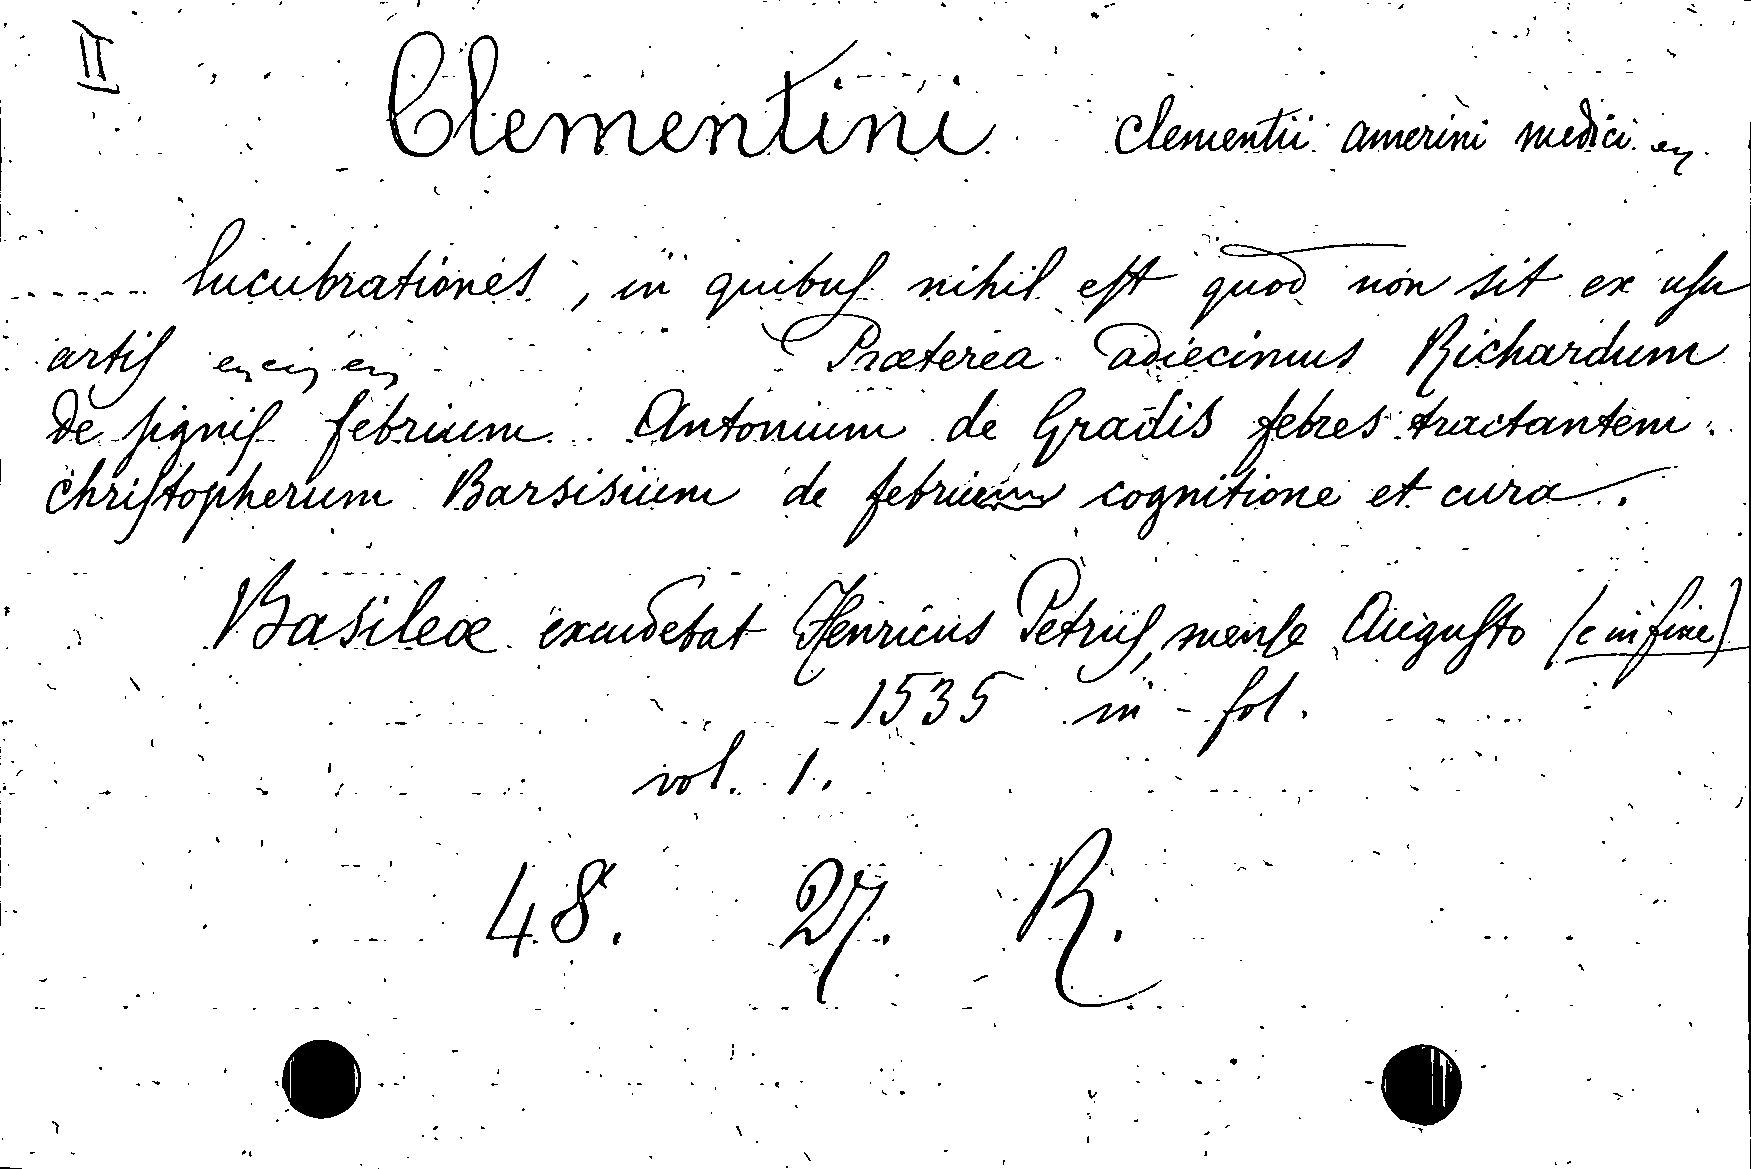 II
Clementini Clementii amerini medici
lucubrationes, in quibus nihil est quod non sit ex usu
artis Præterea adiecimus Richardum
de signis febrium Antonium de Gradis febres tractantem.
christopherum Barsisium de febrium cognitione et cura.
Basileæ excudebat Henricus Petrus, mense Augusto (e in fine)
1535 in-fol.
vol. 1.
48. 27. R.